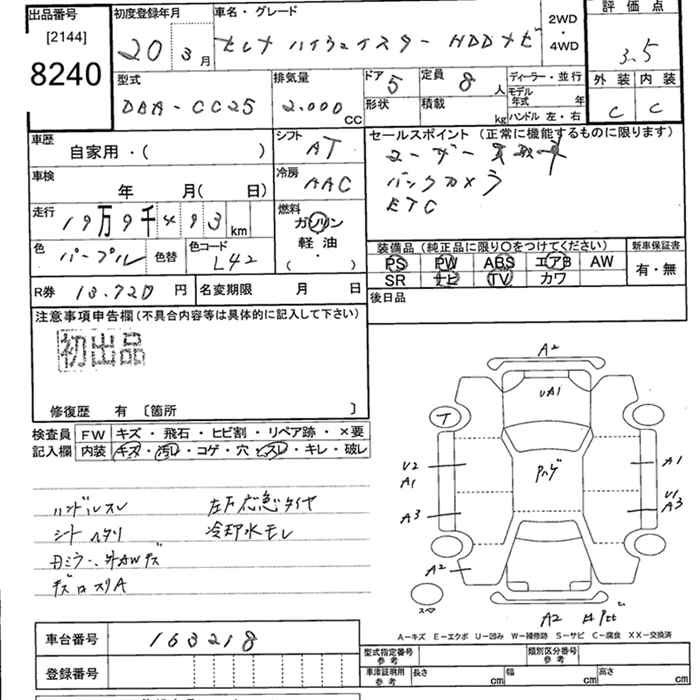 出品番号
[2144]
8240
初度登録年月
20年3月
車名・グレード
セレナ ハイウェイスター HDDナビ
2WD
・
4WD
評価点
3.5
外装 内装
C C
型式
DBA-CC25
排気量
2.000 CC
ドア 5
形状
定員 8 人
積載 kg
ディーラー・並行
モデル年式 年
ハンドル 左・右
車歴
自家用・( )
シフト
AT
車検
年 月( 日)
冷房
AAC
走行
19万9千493km
燃料
ガソリン
軽油
( ・ )
色
パープル
色替
色コード
L42
R券 13.720 円
名変期限 月 日
セールスポイント(正常に機能するものに限ります)
ユーザー買取車
バックカメラ
ETC
装備品(純正品に限り○をつけてください)
PS PW ABS エアB AW
SR ナビ TV カワ
新車保証書
有・無
後日品
注意事項申告欄(不具合内容等は具体的に記入して下さい)
初出品
修復歴 有 〔箇所 〕
検査員記入欄
FW キズ・飛石・ヒビ割・リペア跡・×要
内装 キズ・汚レ・コゲ・穴・スレ・キレ・破レ
ハンドルスレ
シートヘタリ
キズ
左下応急タイヤ
冷却水モレ
A2
UA1
T
U2
A1
A3
A2
A1
U1
A3
スペア
A2
A-キズ E-エクボ U-凹み W-補修跡 S-サビ C-腐食 XX-交換済
車台番号
163218
登録番号
型式指定番号
参考
類別区分番号
参考
車庫証明用
参考
長さ cm
幅 cm
高さ cm